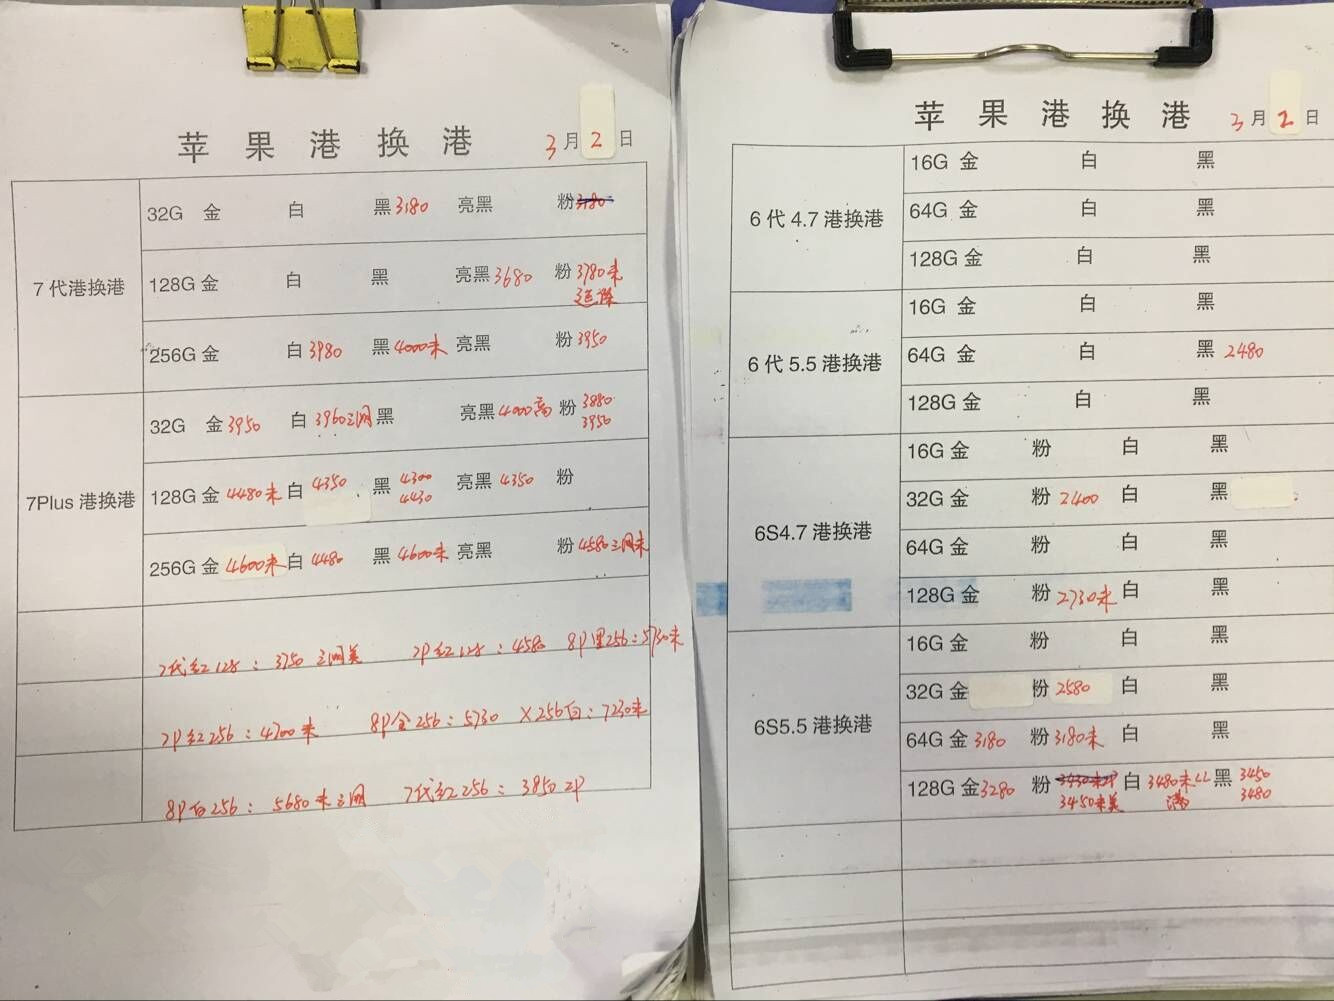 苹果港换港 3月2日
7代港换港
32G 金 白 黑3180 亮黑 粉3180
128G 金 白 黑 亮黑3680 粉3780未
256G 金 白3980 黑4000未 亮黑 粉3950
7Plus 港换港
32G 金3950 白3960三网 黑 亮黑4000高 粉3880
3950
128G 金4480未 白4350 黑4300 亮黑4350 粉
4430
256G 金4600未 白4480 黑4600未 亮黑 粉4580三网未
7代红128：3750三网美 7P红128：4580 8P黑256：5730未
7P红256：4700未 8P金256：5730 X256白：7230未
8P白256：5680未三网 7代红256：3850ZP
苹果港换港 3月2日
6代4.7港换港
16G 金 白 黑
64G 金 白 黑
128G 金 白 黑
6代5.5港换港
16G 金 白 黑
64G 金 白 黑2480
128G 金 白 黑
6S4.7港换港
16G 金 粉 白 黑
32G 金 粉2400 白 黑
64G 金 粉 白 黑
128G 金 粉2730未 白 黑
6S5.5港换港
16G 金 粉 白 黑
32G 金 粉2580 白 黑
64G 金3180 粉3180未 白 黑
128G 金3280 粉 白3480未LL 黑3450
3450未美 满 3480